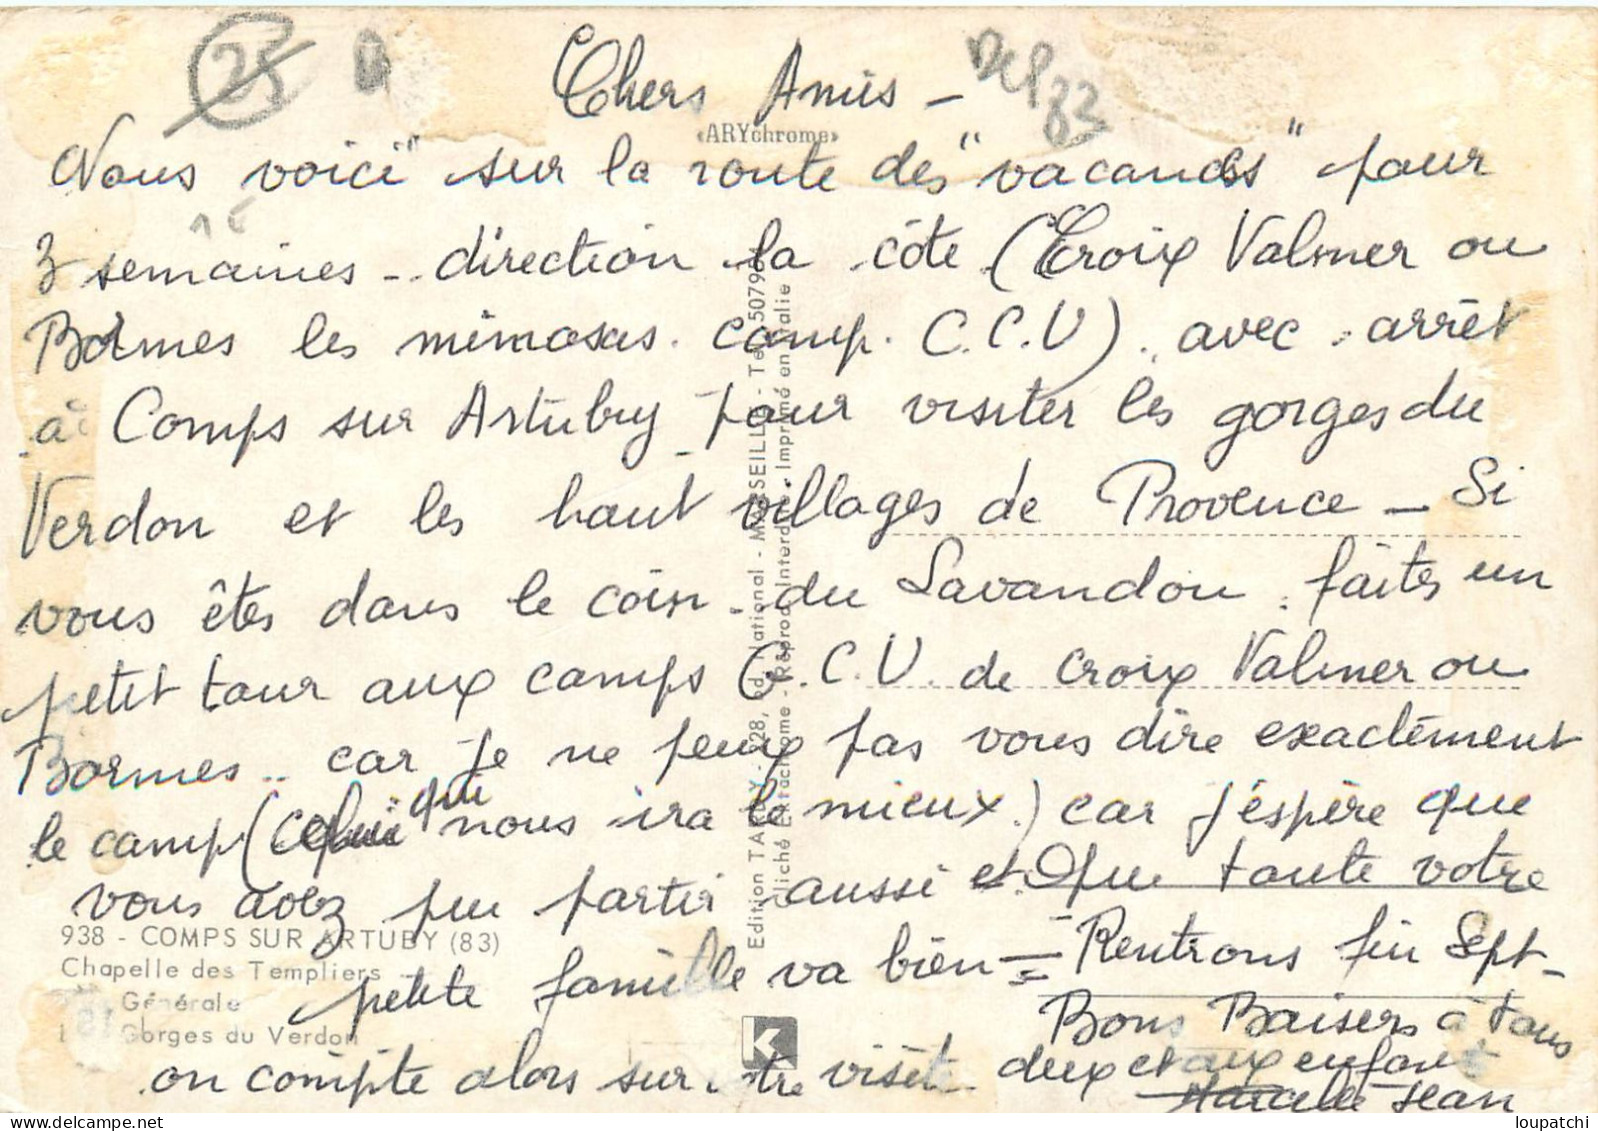 25
Dep 83
Chers Amis -
«ARYchrome»
Nous voici" sur la route des "vacances" pour
3 semaines - direction la côte (Croix Valmer ou
Bormes les mimosas. camp. C.C.U) avec arrêt
à Comps sur Artuby pour visiter les gorges du
Verdon et les haut villages de Provence - Si
vous êtes dans le coin du Lavandou. faites un
petit tour aux camps C.C.U. de Croix Valmer ou
Bormes.. car je ne peux pas vous dire exactement
le camp (celui qui nous ira le mieux) car j'éspère que
vous avez pu partir aussi et que toute votre
petite famille va bien = Rentrons fin Sept-
on compte alors sur votre visite
Bons Baisers à tous
deux et aux enfants
Marcelle Jean
938 - COMPS SUR ARTUBY (83)
Chapelle des Templiers
Générale
Gorges du Verdon
Edition TARDY - 228, Bd. National - MARSEILLE - Tél. 50796
Cliché Ektachrome - Reprod. Interdite. Imprimé en Italie
K
loupatchi